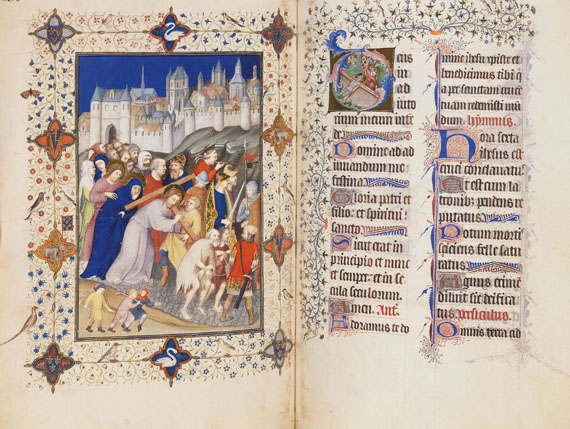 Deus
in
ad
iuto
rium meum inten
de
Domine ad ad
iuuandum me
festina
Gloria patri et
filio: et spiritui
sancto
Sicut erat in
principio et nunc
et semper: et in se
cula seculorum.
Amen. Ant.
Adoramus te do
mine et
benedicimus tibi q
per sanctam cruce
tuam redemisti mu
dum. hymnus.
Hora sexta
ihesus est
cruci conclauatus
est cum la
tronibus pendens re
putatus
Potum mortis
sitiens felle satu
ratus
Agnus crimen
diluit sic deifica
tus Versiculus.
Omnis terra ad